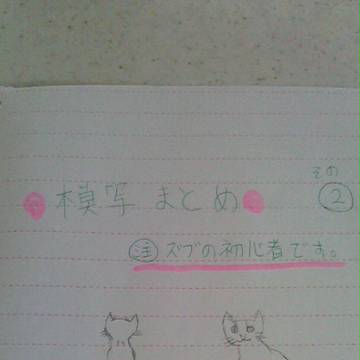 その
模写 まとめ ②
注 ズブの初心者です。